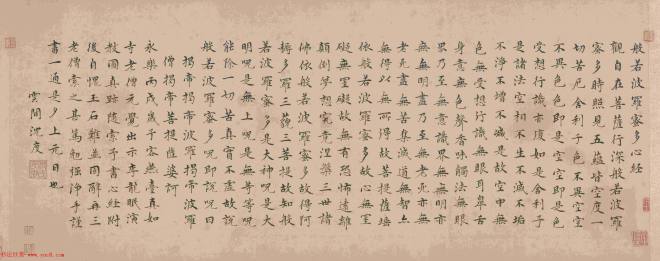 般若波羅蜜多心經
觀自在菩薩行深般若波羅
蜜多時照見五蘊皆空度一
切苦厄舍利子色不異空空
不異色色即是空空即是色
受想行識亦復如是舍利子
是諸法空相不生不滅不垢
不淨不增不減是故空中無
色無受想行識無眼耳鼻舌
身意無色聲香味觸法無眼
界乃至無意識界無無明亦
無無明盡乃至無老死亦無
老死盡無苦集滅道無智亦
無得以無所得故菩提薩埵
依般若波羅蜜多故心無罣
礙無罣礙故無有恐怖遠離
顛倒夢想究竟涅槃三世諸
佛依般若波羅蜜多故得阿
耨多羅三藐三菩提故知般
若波羅蜜多是大神呪是大
明呪是無上呪是無等等呪
能除一切苦真實不虛故說
般若波羅蜜多呪即說呪曰
揭帝揭帝般羅揭帝般羅
僧揭帝菩提薩婆訶
永樂丙戌歲予客燕臺真如
寺老僧元覺出示李龍眠演
教圖真跡隨索予書心經附
後自愧玉石難並固辭再三
老僧索之甚篤勉強淨手謹
書一通是夕上元日也
雲間沈度